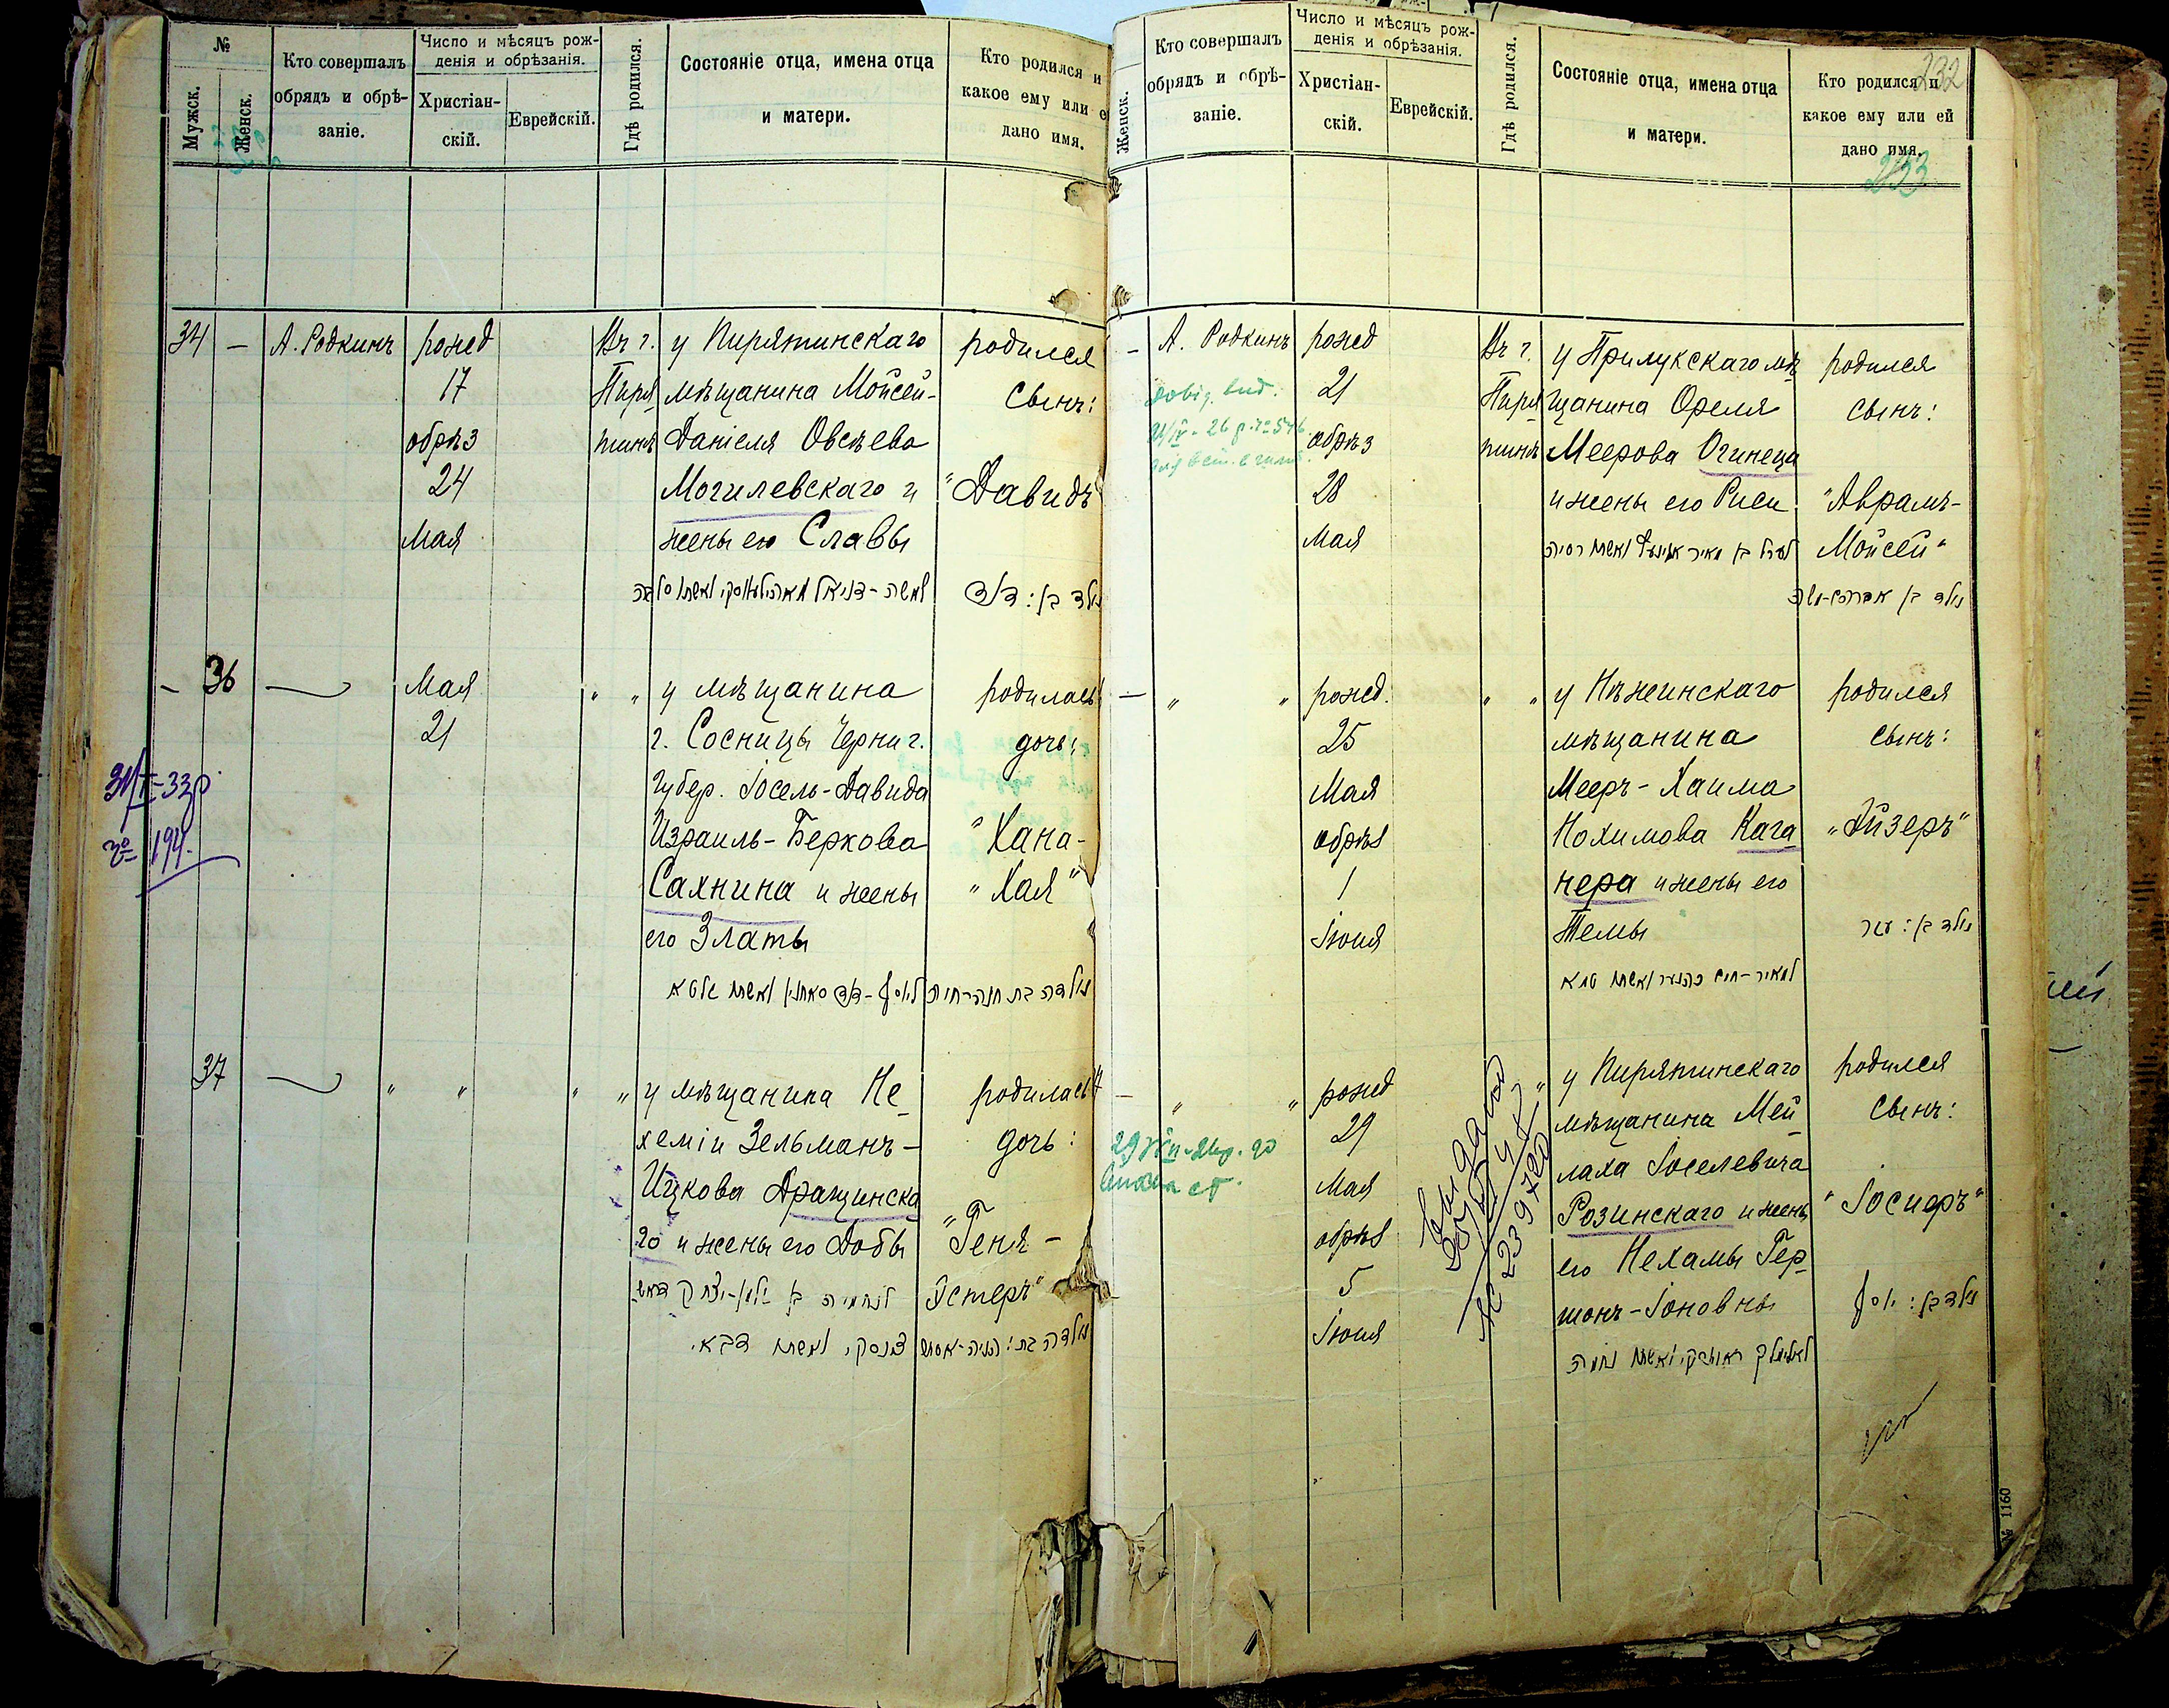 №
Мужск.
Женск.
Кто совершалъ
обрядъ и обрѣ-
заніе.
Число и мѣсяцъ рож-
денія и обрѣзанія.
Христіан-
скій.
Еврейскій.
Гдѣ родился.
Состояніе отца, имена отца
и матери.
Кто родился и
какое ему или е
дано имя.
34 — А. Родкинъ
рожд
17
обрѣз
24
Мая
Въ г.
Пиря
тинѣ
у Пирятинскаго
мѣщанина Мойсей-
Даніеля Овсѣева
Могилевскаго и
жены его Славы
родился
сынъ:
"Давидъ
נולד בן: דוד
— 36 —
Мая
21
" "
у мѣщанина
г. Сосницы Черниг.
губер. Іосель-Давида
Израиль-Беркова
Сахнина и жены
его Златы
родилась
дочь:
"Хана-
"Хая"
נולדה בת חנה-חיה
ליוסף-דוד סאחנין ואשתו זלאטא
№ 194.
37 —
" "
" "
у мѣщанина Не-
хеміи Зельманъ-
Ицкова Дращинска
го и жены его Добы
родилась
дочь:
"Геня-
Эстеръ"
Женск.
Кто совершалъ
обрядъ и обрѣ-
заніе.
Число и мѣсяцъ рож-
денія и обрѣзанія.
Христіан-
скій.
Еврейскій.
Гдѣ родился.
Состояніе отца, имена отца
и матери.
Кто родился и
какое ему или ей
дано имя.
232
233
— А. Родкинъ
рожд
21
обрѣз
28
Мая
Въ г.
Пиря
тинѣ
у Прилукскаго мѣ
щанина Ореля
Меерова Огинеца
и жены его Риси
родился
сынъ:
"Аврамъ-
Мойсей"
נולד בן אברהם-משה
— " "
рожд.
25
Мая
обрѣз
1
Іюня
" "
у Нѣжинскаго
мѣщанина
Мееръ-Хаима
Нохимова Кага
нера и жены его
Темы
родился
сынъ:
"Айзеръ"
— " "
рожд
29
Мая
обрѣз
5
Іюня
"
у Пирятинскаго
мѣщанина Мей
лаха Іоселевича
Розинскаго и жены
его Нехамы Гер-
шонъ-Іоновны
родился
сынъ:
"Іосифъ"
נולד בן: יוסף
№ 1160